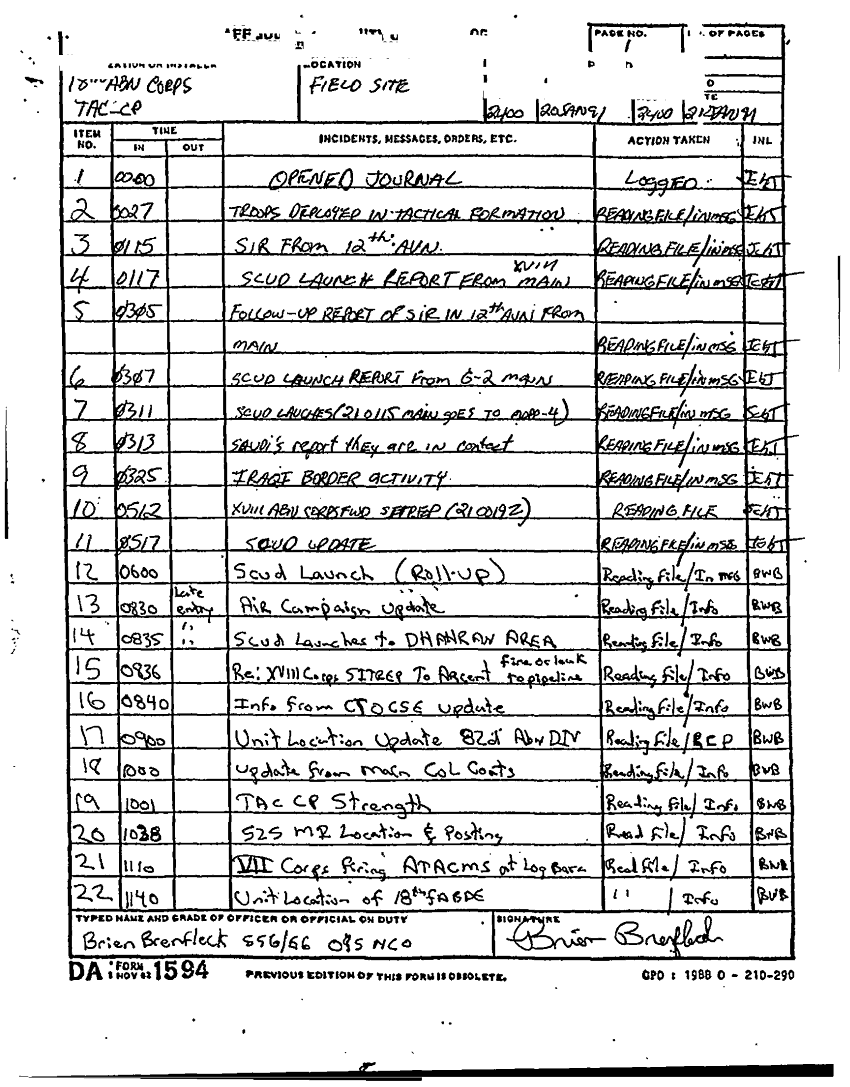 PAGE NO. OF PAGES
1
LOCATION
18TH ABN CORPS FIELD SITE
TAC-CP 2400 20JAN91 2400 21JAN91
ITEM NO. TIME IN OUT INCIDENTS, MESSAGES, ORDERS, ETC. ACTION TAKEN INL
1 0000 OPENED JOURNAL LOGGED
2 0027 TROOPS DEPLOYED IN TACTICAL FORMATION READING FILE/INMSG
3 0115 SIR FROM 12th AVN. READING FILE/INMSG
XVIII
4 0117 SCUD LAUNCH REPORT FROM MAIN READING FILE/INMSG
5 0305 FOLLOW-UP REPORT OF SIR IN 12th AVN FROM
MAIN READING FILE/IN MSG
6 0307 SCUD LAUNCH REPORT From G-2 MAIN READING FILE/IN MSG
7 0311 SCUD LAUCHES (210115 MAIN GOES TO MOPP-4) READING FILE/IN MSG
8 0313 SAUDI'S report they are in contact READING FILE/IN MSG
9 0325 IRAQI BORDER ACTIVITY READING FILE/IN MSG
10 0512 XVIII ABN CORPS FWD SETREP (210019Z) READING FILE
11 0517 SCUD UPDATE READING FILE/IN MSG
12 0600 Scud Launch (Roll-UP) Reading File/In MSG BWB
13 0830 Late entry Air Campaign Update Reading File/Info BWB
14 0835 " Scud Launches to DHAHRAN AREA Reading File/Info BWB
15 0836 Re: XVIII Corps SITREP To Arcent fire or leak to pipeline Reading File/Info BWB
16 0840 Info from CTOCSE update Reading File/Info BWB
17 0900 Unit Location Update 82d Abn DIV Reading File/REP BWB
18 1000 update from Main COL Coats Reading File/Info BWB
19 1001 TAC CP Strength Reading File/Info BWB
20 1038 525 MI Location & Posting Read File/Info BWB
21 1110 VII Corps firing ATACMS at Log Base Read File/Info BWB
22 1140 Unit Location of 18th FABDE " / Info BWB
TYPED NAME AND GRADE OF OFFICER OR OFFICIAL ON DUTY SIGNATURE
Brien Brenfleck SSG/E6 OPS NCO Brien Brenfleck
DA FORM NOV 62 1594 PREVIOUS EDITION OF THIS FORM IS OBSOLETE. GPO : 1988 O - 210-290